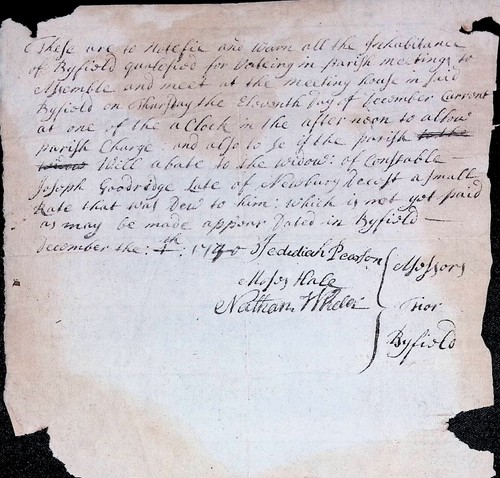 These are to Notefie and warn all the Inhabitance
of Byfield qualefied for Voteing in parish meetings to
Assemble and meet at the meeting house in said
Byfield on Thursday the Eleventh day of December Currant
at one of the a Clock in the after noon to allow
parish Charge: and also to se if the parish
Will abate to the widow: of Constable
Joseph Goodridge Late of Newbury Decest a small
Rate that was Dew to him: which is not yet paid
as may be made appear Dated in Byfield
December the: 4th: 1740 Jedediah Pearson
Moses Hale
Nathan Wheler
Assessors
For
Byfield